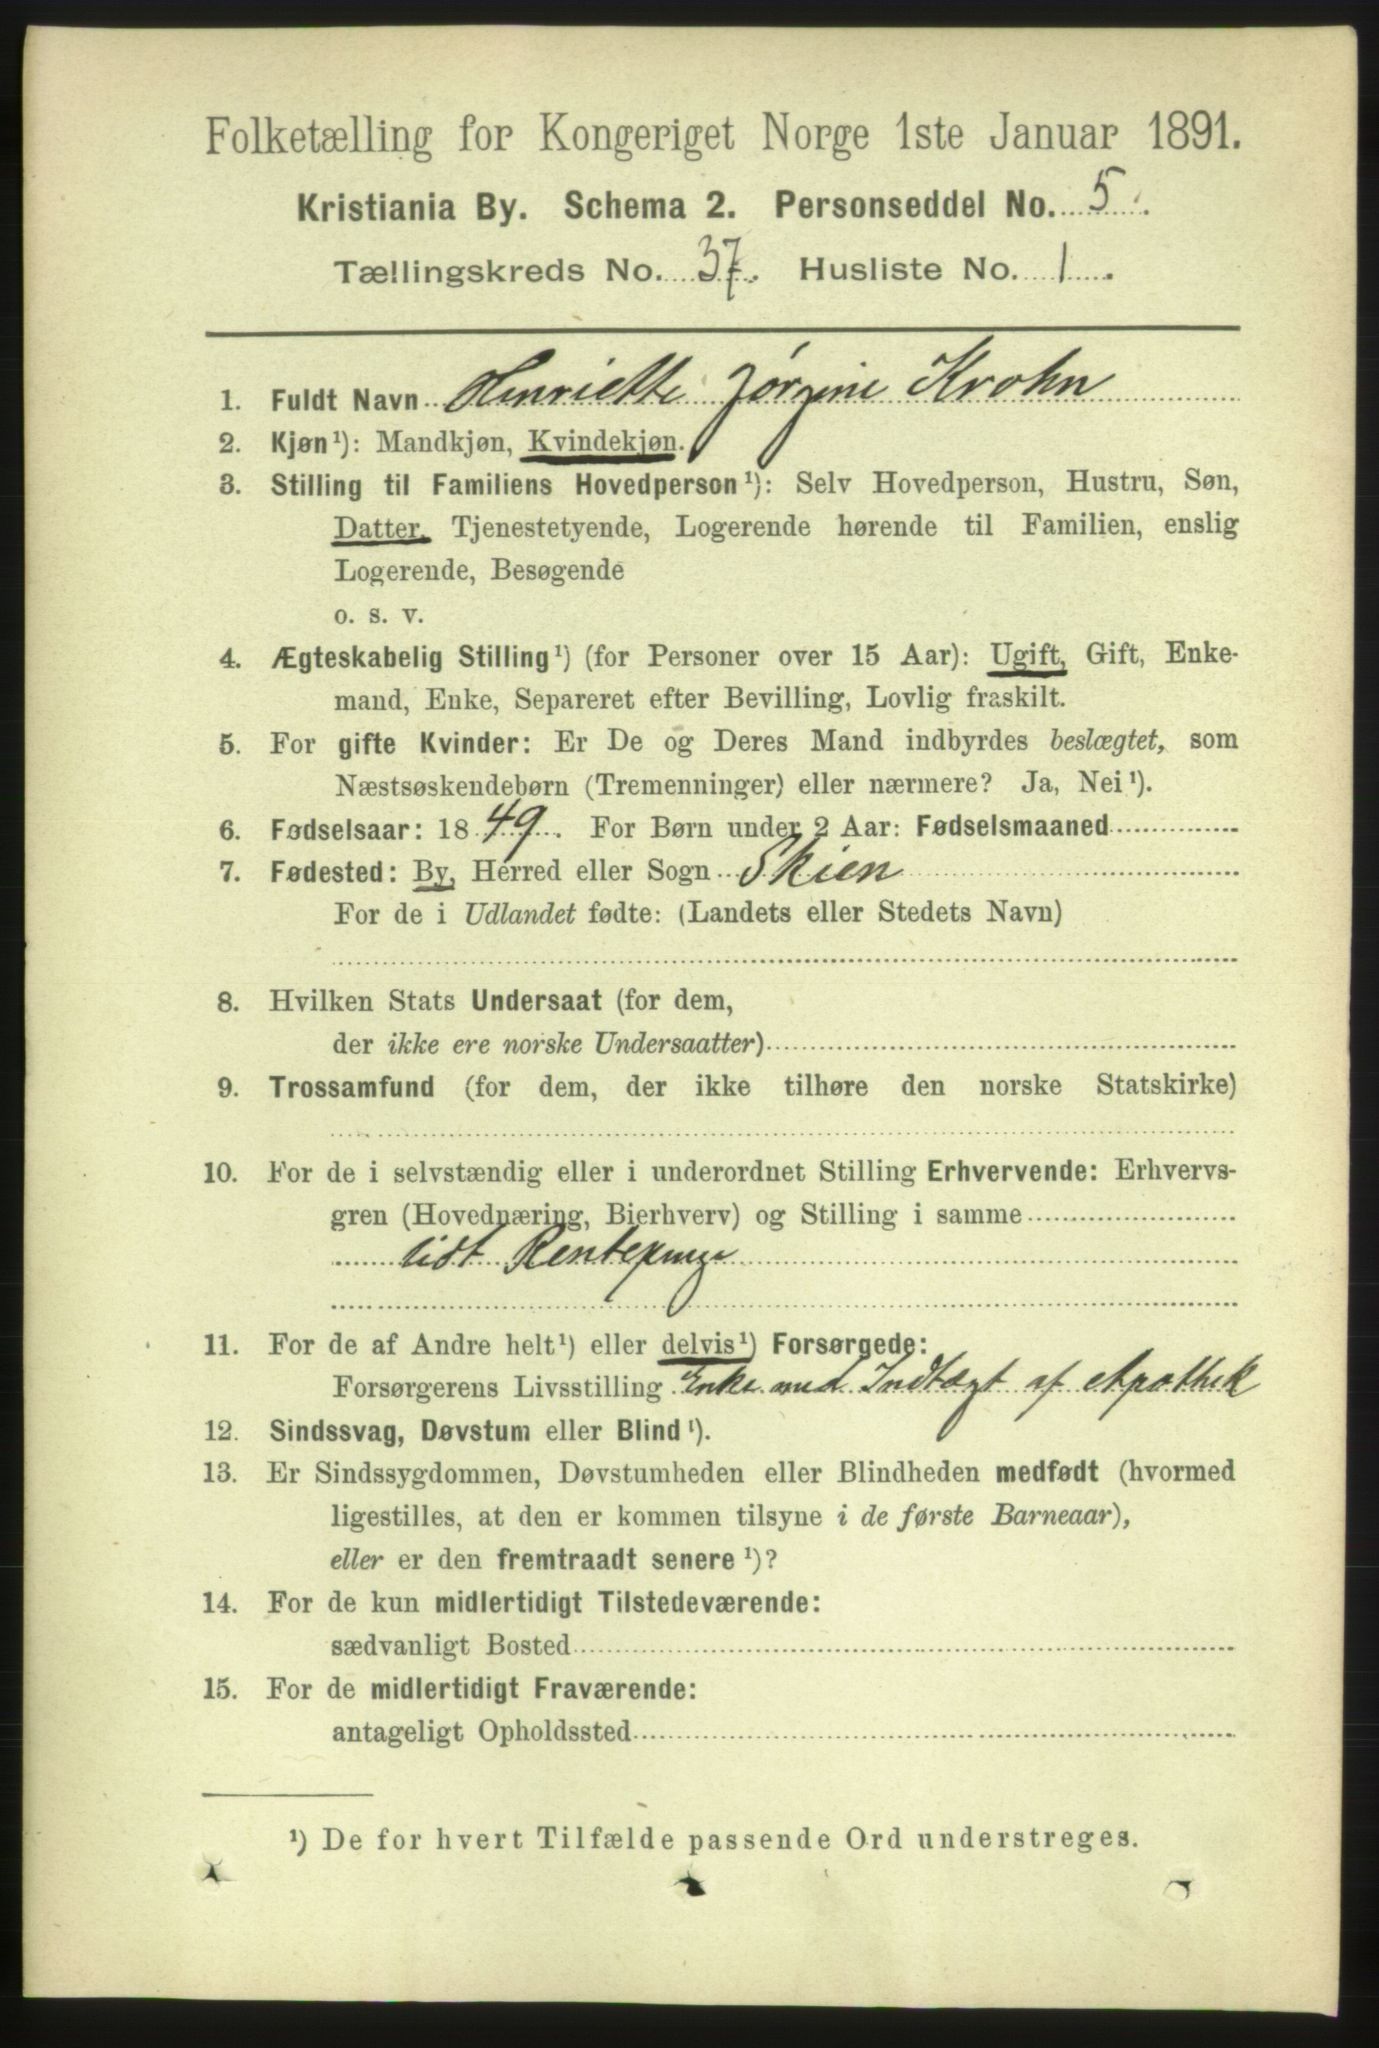 Folketælling for Kongeriget Norge 1ste Januar 1891.
Kristiania By. Schema 2. Personseddel No. 5.
Tællingskreds No. 37. Husliste No. 1.
1. Fuldt Navn Henriette Jørgine Krohn
2. Kjøn¹): Mandkjøn, Kvindekjøn.
3. Stilling til Familiens Hovedperson¹): Selv Hovedperson, Hustru, Søn,
Datter, Tjenestetyende, Logerende hørende til Familien, enslig
Logerende, Besøgende
o. s. v.
4. Ægteskabelig Stilling¹) (for Personer over 15 Aar): Ugift, Gift, Enke-
mand, Enke, Separeret efter Bevilling, Lovlig fraskilt.
5. For gifte Kvinder: Er De og Deres Mand indbyrdes beslægtet, som
Næstsøskendebørn (Tremenninger) eller nærmere? Ja, Nei¹).
6. Fødselsaar: 1849. For Børn under 2 Aar: Fødselsmaaned
7. Fødested: By, Herred eller Sogn Skien
For de i Udlandet fødte: (Landets eller Stedets Navn)
8. Hvilken Stats Undersaat (for dem,
der ikke ere norske Undersaatter)
9. Trossamfund (for dem, der ikke tilhøre den norske Statskirke)
10. For de i selvstændig eller i underordnet Stilling Erhvervende: Erhvervs-
gren (Hovednæring, Bierhverv) og Stilling i samme
lidt Rentepenge
11. For de af Andre helt¹) eller delvis¹) Forsørgede:
Forsørgerens Livsstilling Enke med Indtægt af Apothek
12. Sindssvag, Døvstum eller Blind¹).
13. Er Sindssygdommen, Døvstumheden eller Blindheden medfødt (hvormed
ligestilles, at den er kommen tilsyne i de første Barneaar),
eller er den fremtraadt senere¹)?
14. For de kun midlertidigt Tilstedeværende:
sædvanligt Bosted
15. For de midlertidigt Fraværende:
antageligt Opholdssted
¹) De for hvert Tilfælde passende Ord understreges.